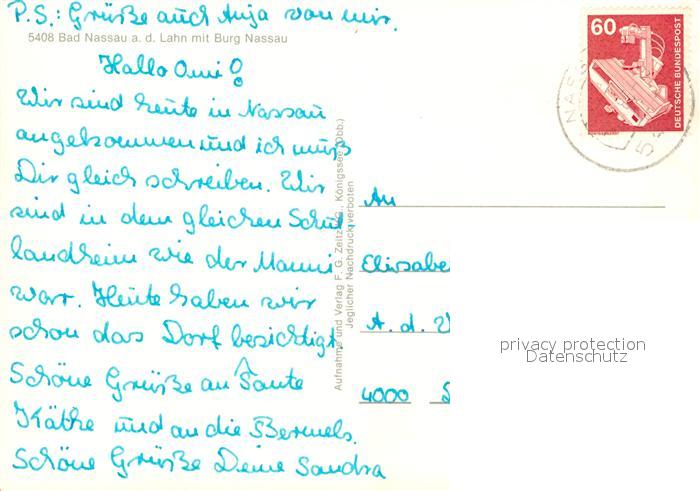 P.S.: Grüße auch Anja von mir.
5408 Bad Nassau a. d. Lahn mit Burg Nassau
Hallo Omi!
Wir sind heute in Nassau
angekommen und ich muß
Dir gleich schreiben. Wir
sind in dem gleichen Schul
landheim wie der Manni
war. Heute haben wir
schon das Dorf besichtigt.
Schöne Grüße an Tante
Käthe und an die Bermels.
Schöne Grüße Deine Sandra
Aufnahme und Verlag F. G. Zeitz KG., Königssee (Obb.)
Jeglicher Nachdruck verboten
60
DEUTSCHE BUNDESPOST
NASS
An
Elisabe
A. d.
4000
privacy protection
Datenschutz